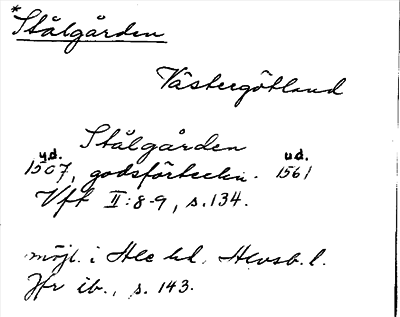 *Stålgården
Västergötland
Stålgården
y.d. u.d.
1507, godsförteckn. 1561
Vft II:8-9, s.134.
möjl. i Hle hd, Hlvsb. l.
Jfr ib., s. 143.